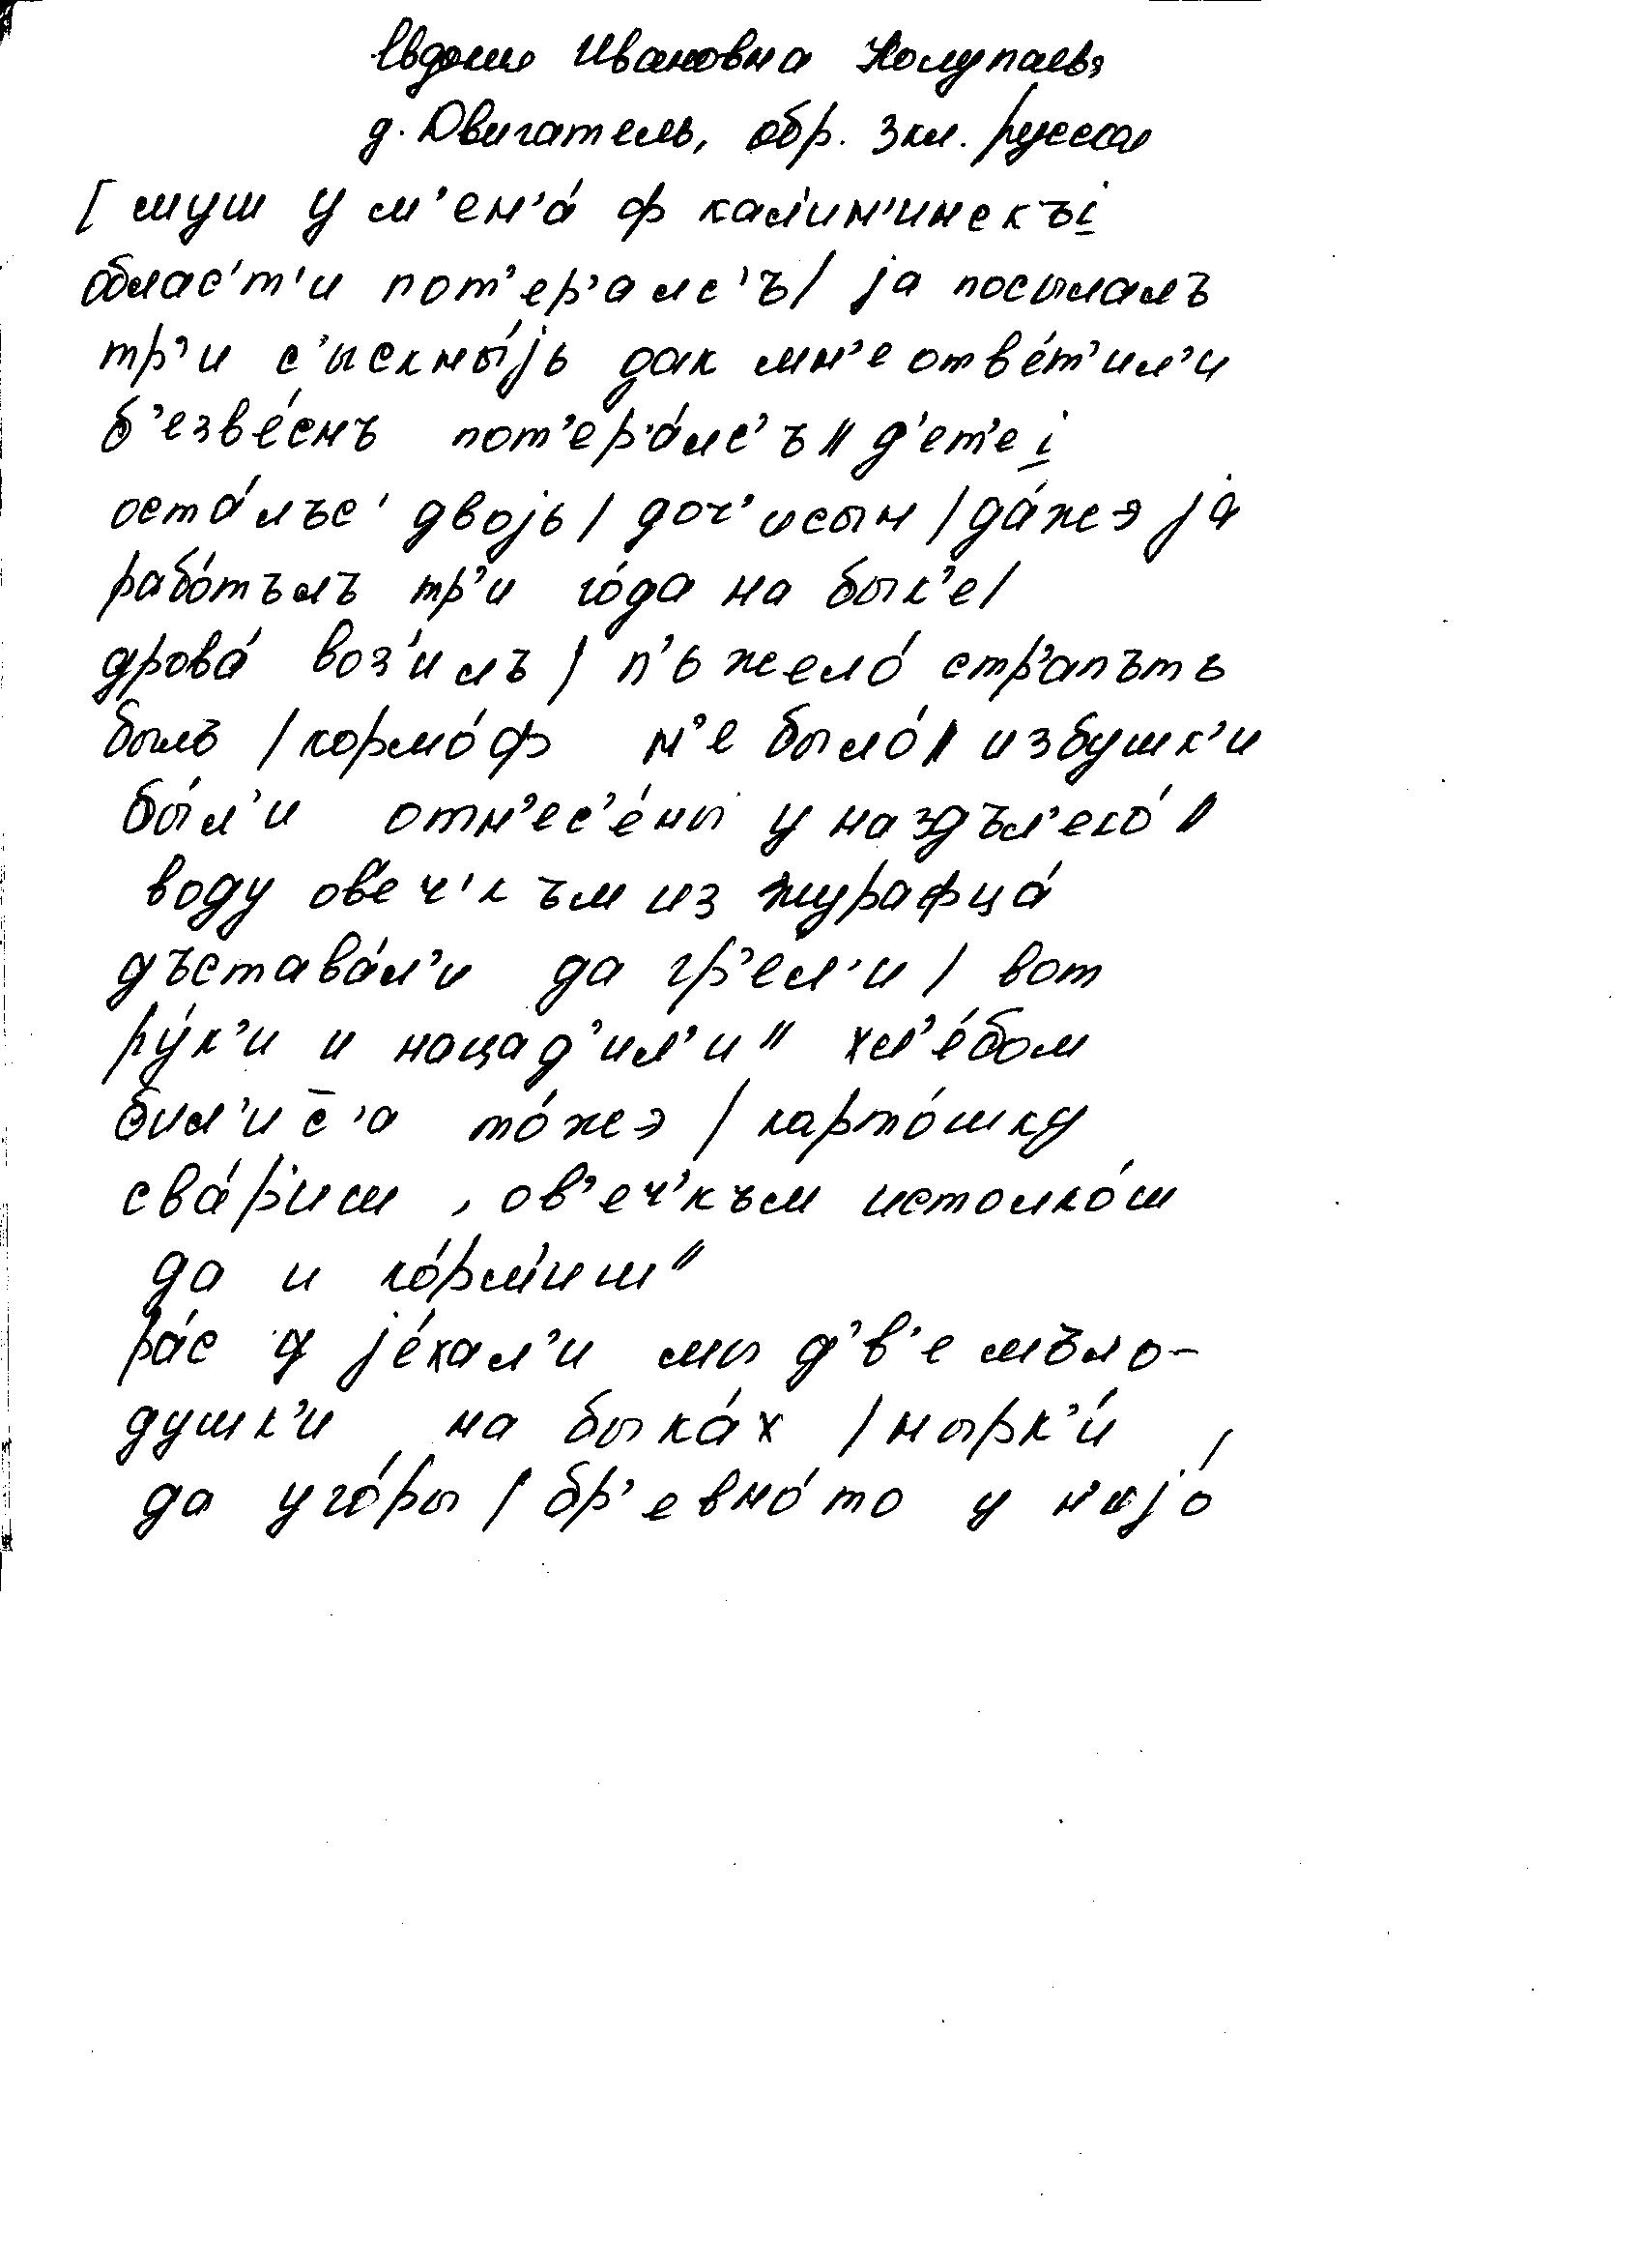 Евдокия Ивановна Колупаева
д. Двигатель, обр. 3 кл. русская
[ муш у м’ен’а́ ф кал’ин’инскъi̯
облас’т’и пот’ер’алс’ъ/ jа посылалъ
тр’и с’ыскны́jь дак мн’е отве́т’ил’и
б’езве́снъ пот’ер’а́лс’ъ// д’ет’еi̯
оста́лъс’ двоjь/ доч’исын /да́жэ jа
рабо́тълъ тр’и го́да на бык’е/
дрова́ воз’илъ / т’ьжело́ стр’апъть
былъ /кормо́ф н’е было́// избушк’и
бы́л’и отн’ес’е́ны у наздъл’еко́//
воду ов’еч’към из журафца́
дъстава́л’и да гр’ел’и / вот
ру́к’и и нацад’ил’и// хл’е́бом
бил’ис̄’а то́жэ / карто́шку
сва́р’иш , ов’еч’към истолко́ш
да и ко́рм’иш//
ра́с у jе́хал’и мы д’в’е мъло-
душк’и на быка́х /нырк’и́
да уго́ры / бр’евно́то у н’иjо́ /